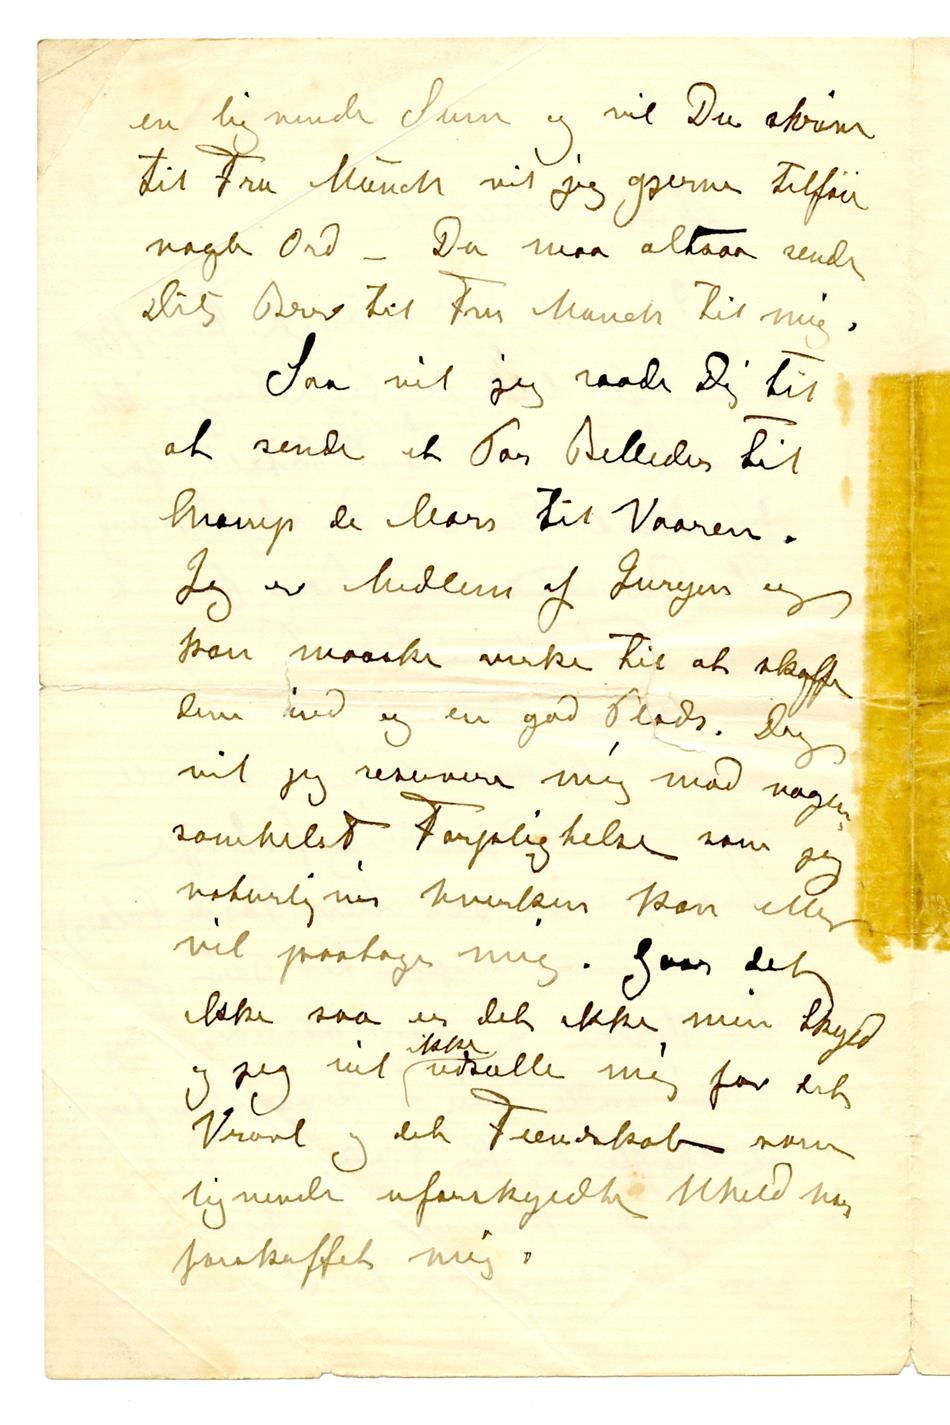 en lignende Sum og vil Du skrive
til Fru Munch vil jeg gjerne tilføie
nogle Ord – Du maa altsaa sende
Dit Brev til Fru Munch til mig.
Saa vil jeg raade Dig til
at sende et Par Billeder til
Champ de Mars til Vaaren.
Jeg er Medlem af Juryen og
kan maaske virke til at skaffe
dem ind og en god Plads. Dog
vil jeg reservere mig mod nogen-
somhelst Forpligtelse som jeg
naturligvis hverken kan eller
vil paatage mig. Gaar det
ikke saa er det ikke min Skyld
og jeg vil ikke udsætte mig for det
Vrøvl og det Fiendskab som
lignende uforskyldte Uheld har
forskaffet mig.